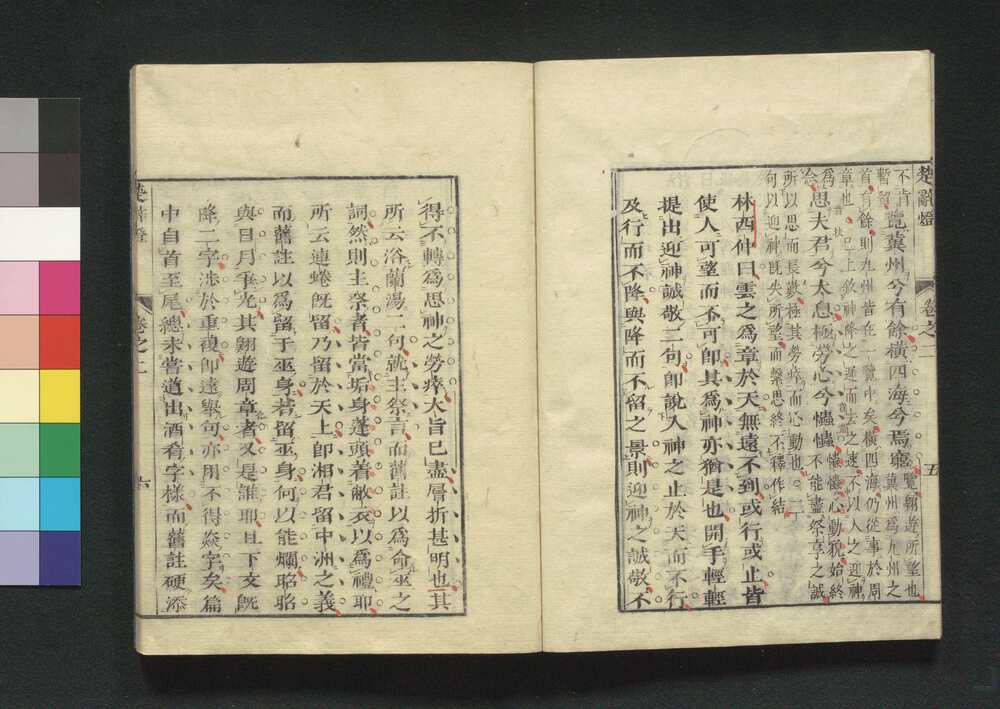 楚辭燈 卷之二 五
不肯
暫留
覽冀州兮有餘橫四海兮焉窮
覽翱遊所望也
冀州爲九州之
首有餘則九州皆在一覽中矣橫四海仍從事於周
章也已上敘神降之逝而去之速不以人之迎神
爲
念
思夫君兮太息極勞心兮𢥞𢥞
𢥞𢥞心動貌始終
不能盡祭享之誠
所以思而長歎極其勞瘁而心動也○二
句以迎神既失所望而繫思終不釋作結
林西仲曰雲之爲章於天無遠不到或行或止皆
使人可望而不可卽其爲神亦猶是也開手輕輕
提出迎神誠敬二句卽說入神之止於天而不行
及行而不降與降而不留之景則迎神之誠敬不
得不轉爲思神之勞瘁大旨已盡層折甚明也其
所云浴蘭湯二句就主祭言而舊註以爲命巫之
詞然則主祭者皆當垢身蓬頭着敝衣以爲禮耶
所云連蜷旣留乃留於天上卽湘君留中洲之義
而舊註以爲留于巫身若留巫身何以能爛昭昭
與日月爭光其翱遊周章者又是誰耶且下文旣
降二字涉於重複卽遠舉句亦用不得猋字矣篇
中自首至尾總未嘗道出酒肴字樣而舊註硬添
楚辭燈 卷之二 六